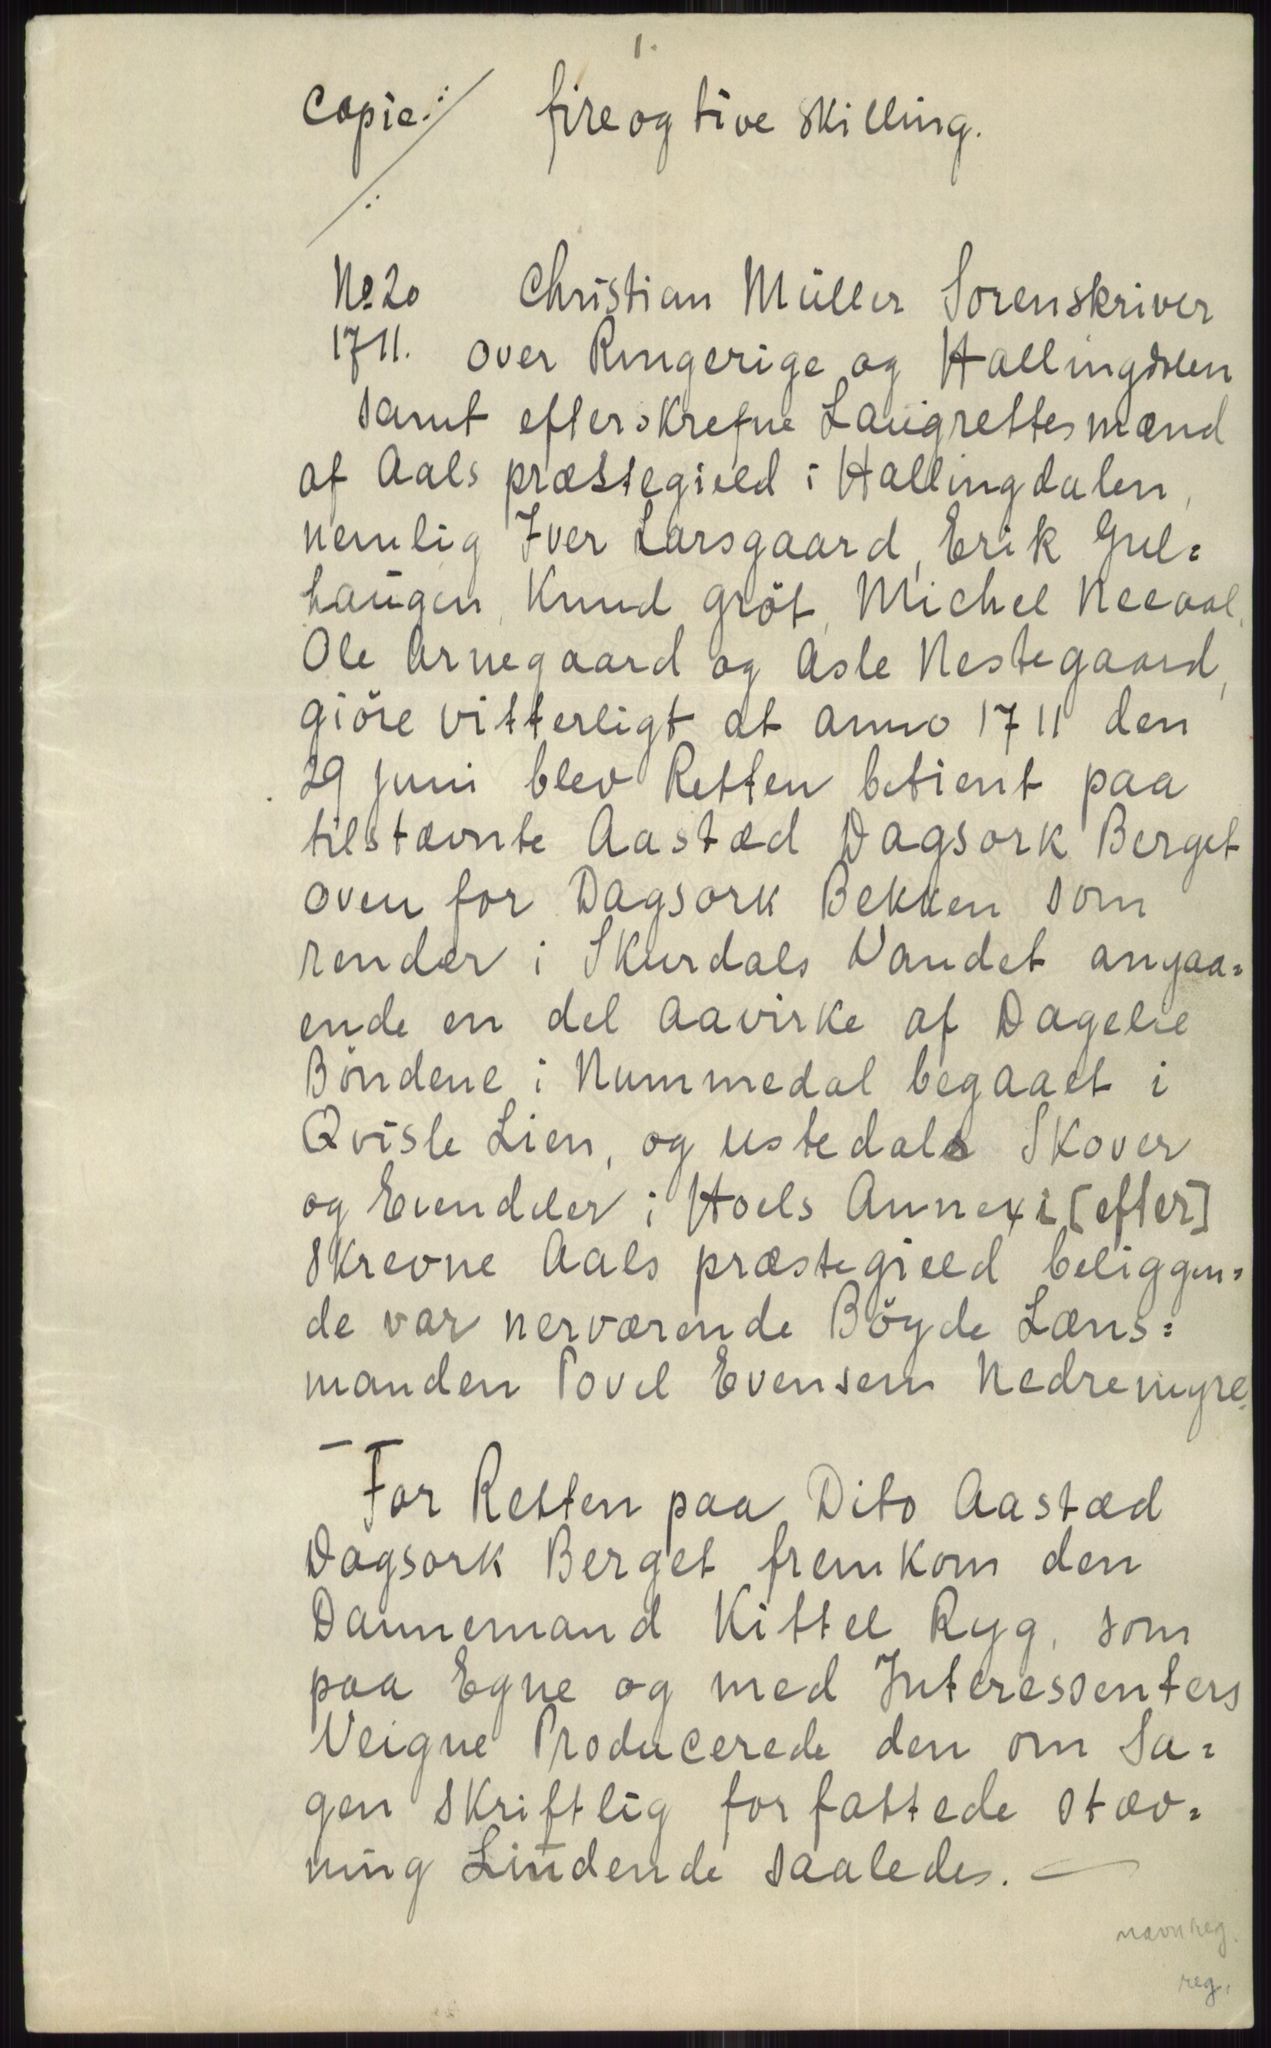 1.
Copie ./. fire og tive skilling.
No 20 Christian Müller Sorenskriver
1711. over Ringerige og Hallingdalen
samt efterskrefne Laugrettesmænd
af Aals præstegield i Hallingdalen,
nemlig Iver Larsgaard, Erik Gul=
haugen, Knud Gröt, Michel Neeaal,
Ole Arnegaard og Asle Nestegaard,
giöre vitterligt at anno 1711 den
29 juni blev Retten betient paa
tilstævnte Aastæd Dagsork Berget
oven for Dagsork Bekken som
render i Skurdals Vandet angaa=
ende en del Aavirke af Dagelie
Böndene i Nummedal begaaet i
Qvisle Lien, og ustedals Skover
og Eiendeler i Hoels Annexi [efter]
skrevne Aals præstegield beliggen=
de var nerværende Böyde Læns=
manden Povel Evensem Nedremyre.
— For Retten paa Dito Aastæd
Dagsork Berget fremkom den
Dannemand Kittel Ryg, som
paa Egne og med Interessenters
Veigne Producerede den om Sa=
gen skriftlig forfattede stæv=
ning Liudende saaledes. —
navnreg.
reg.